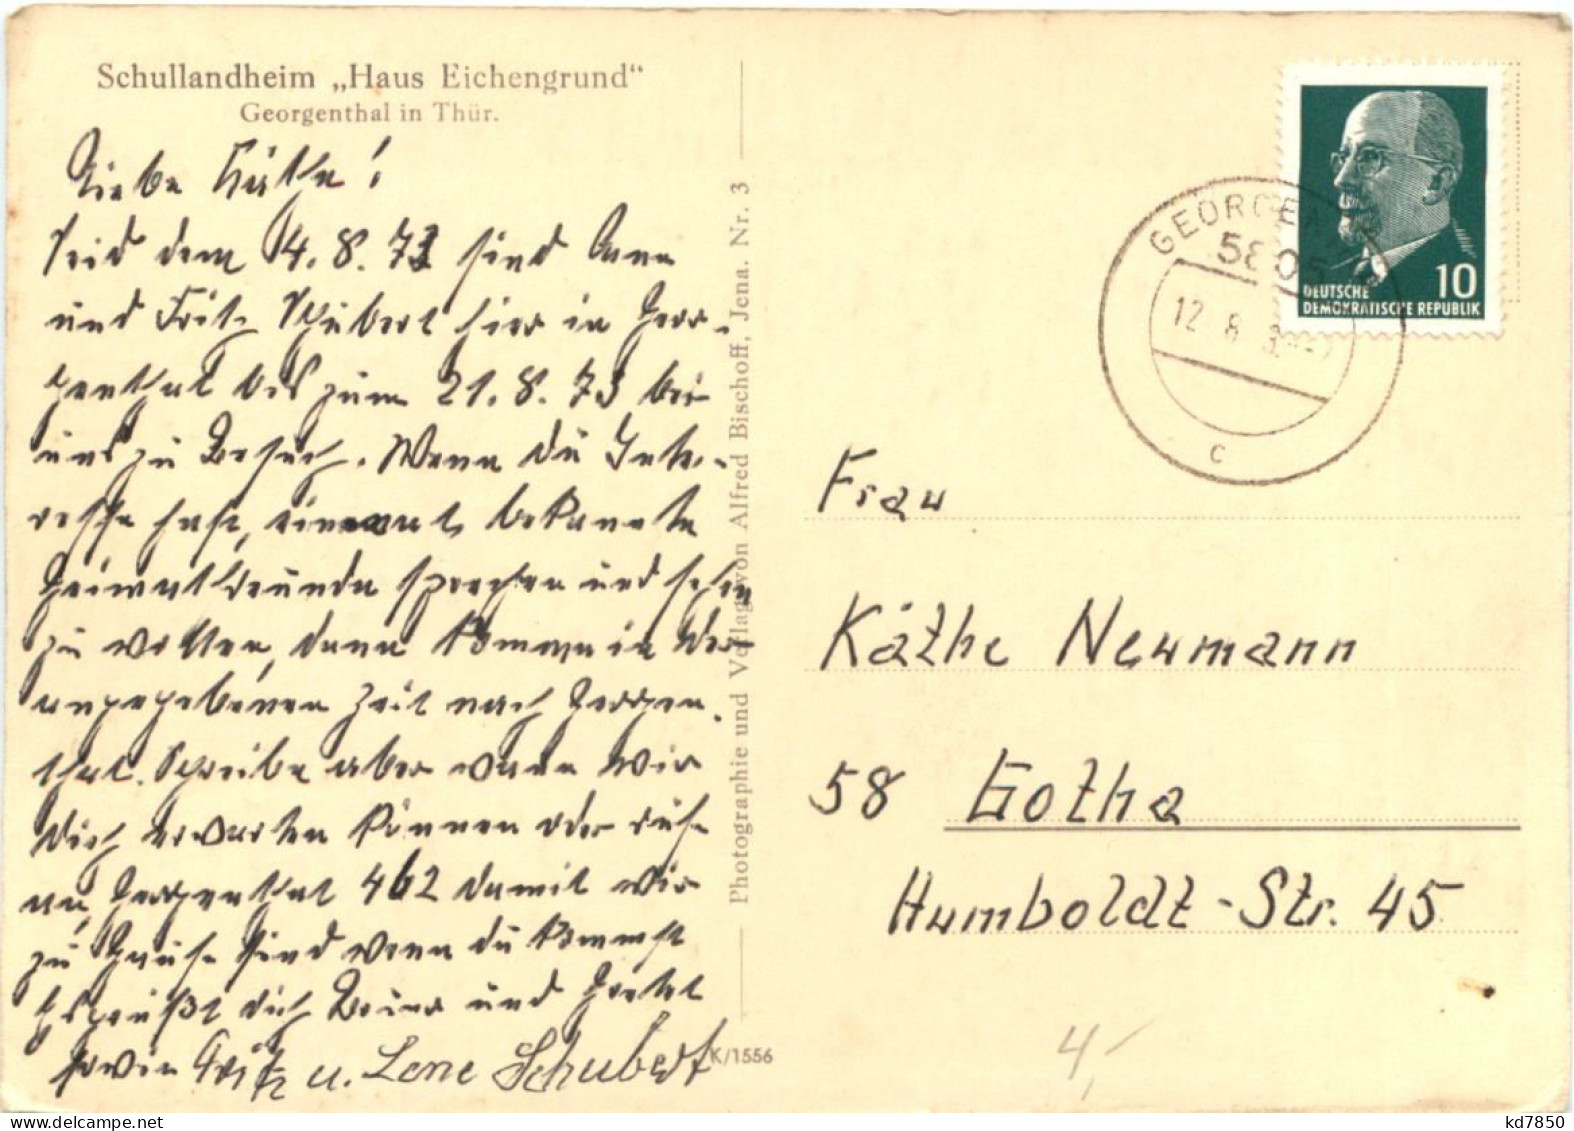 Schullandheim „Haus Eichengrund“
Georgenthal in Thür.
Liebe Käthe!
Seid dem 14. 8. 73 sind Lene
und Fritz Schubert hier in Geor-
genthal bis zum 21. 8. 73 bei
uns zu Besuch. Wenn du Inte-
resse hast, einmal bekannte
Heimatfreunde sprechen und sehen
zu wollen, dann komme in der
angegebenen Zeit nach Georgen-
thal. Schreibe aber wann wir
dich erwarten können oder rufe
an Georgenthal 462 damit wir
zu Hause sind wenn du kommst
Es grüßt dich und
sowie Fritz u. Lene Schubert
Photographie und Verlag von Alfred Bischoff, Jena. Nr. 3
K/1556
GEORGEN
5805
12. 8.
c
10
DEUTSCHE
DEMOKRATISCHE REPUBLIK
Frau
Käthe Neumann
58 Gotha
Humboldt-Str. 45
4,-
kd7850